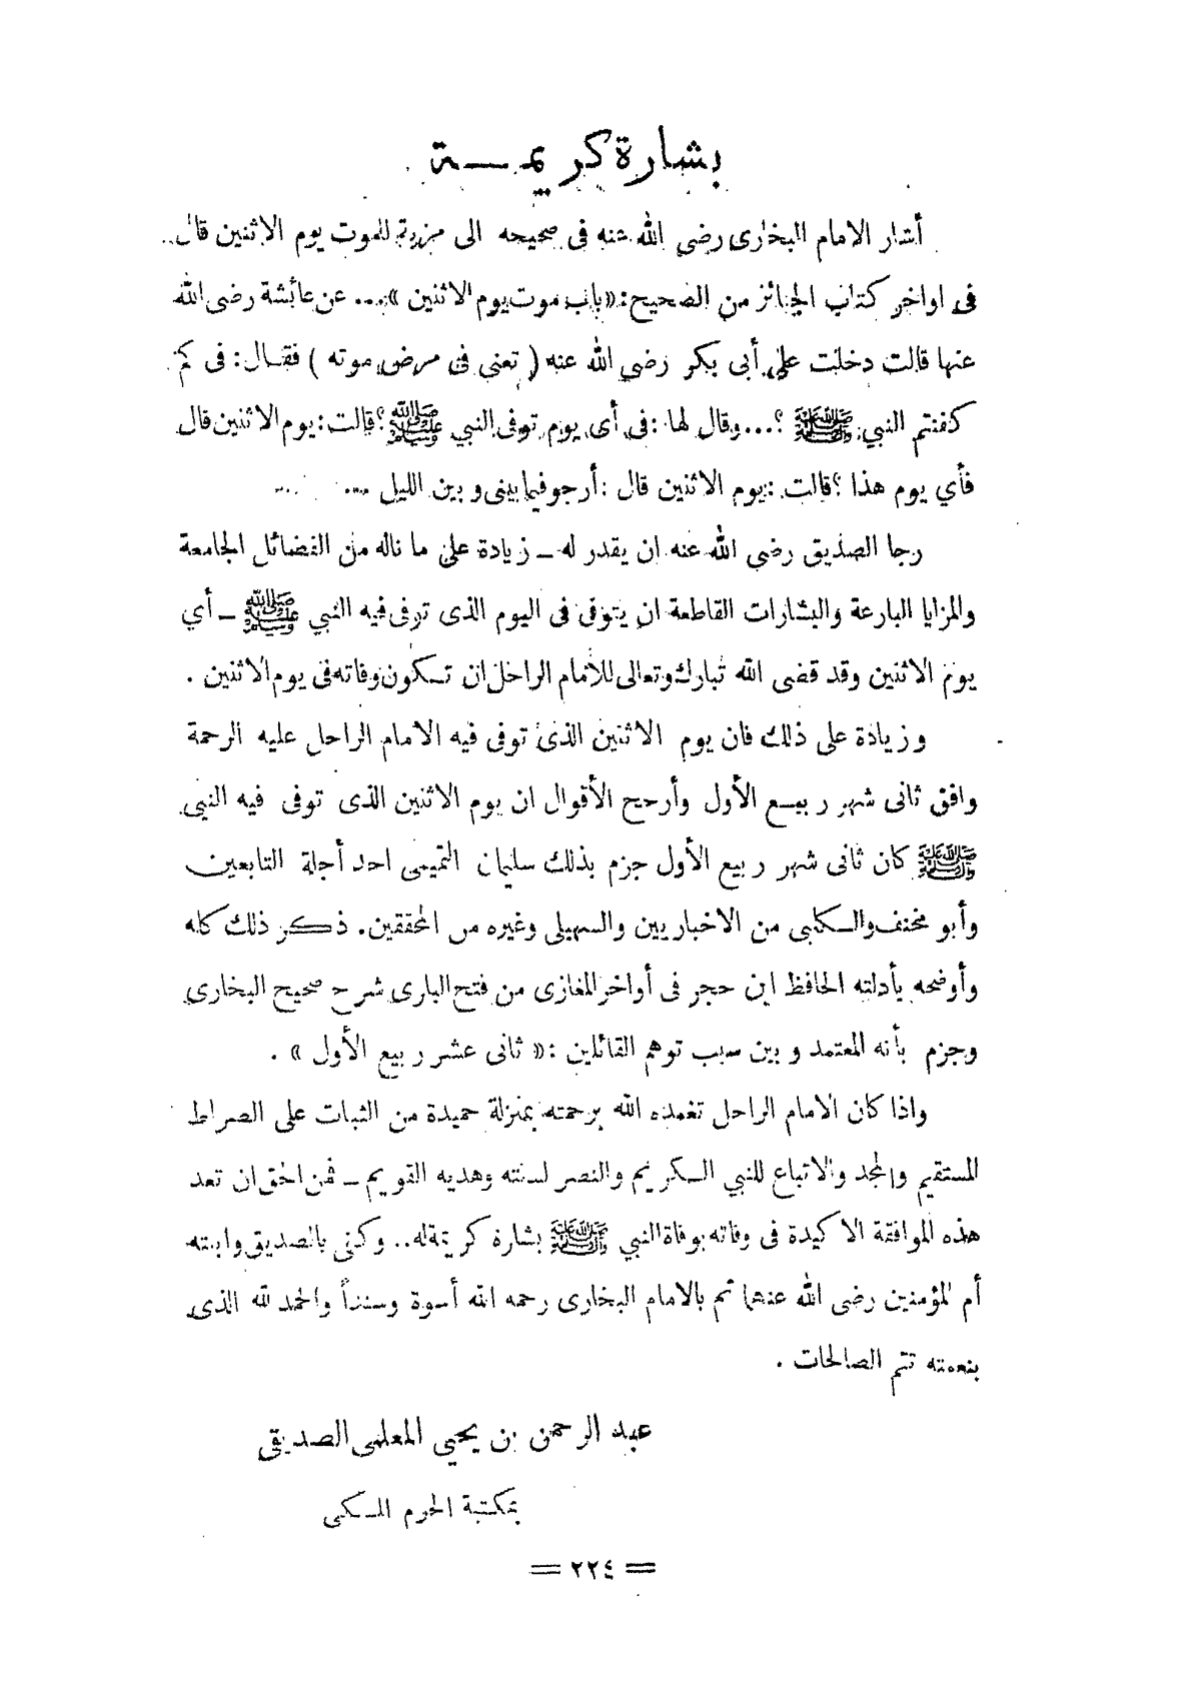 بشارة كريمـــة
أشار الامام البخارى رضي الله عنه فى صحيحه الى مزية للموت يوم الاثنين قال..
فى اواخر كتاب الجنائز من الصحيح: «باب موت يوم الاثنين»... عن عائشة رضى الله
عنها قالت دخلت على أبى بكر رضي الله عنه ( تعنى فى مرض موته ) فقـال: فى كم
كفنتم النبي ﷺ ؟...وقال لها :فى أى يوم توفى النبي ﷺ ؟قالت: يوم الاثنين قال
فأي يوم هذا ؟قالت :يوم الاثنين قال :أرجو فيما بينى و بين الليل ... ...
رجا الصديق رضي الله عنه ان يقدر له ـ زيادة على ما ناله من الفضائل الجامعة
والمزايا البارعة والبشارات القاطعة ان يتوفى فى اليوم الذى توفى فيه النبي ﷺ ـ أي
يوم الاثنين وقد قضى الله تبارك وتعالى للامام الراحل ان تـكون وفاته فى يوم الاثنين .
و زيادة على ذلك فان يوم الاثنين الذى توفى فيه الامام الراحل عليه الرحمة
وافق ثانى شهر ر بيـع الأول وأرجح الأقوال ان يوم الاثنين الذى توفى فيه النبي
ﷺ كان ثانى شهر ر بيع الأول جزم بذلك سليمان التميمى احد أجلة التابعين
وأبو مخنف والـكلبى من الاخباريين والسهيلى وغيره من المحققين. ذكر ذلك كله
وأوضحه بأدلته الحافظ ابن حجر فى أواخر المغازى من فتح البارى شرح صحيح البخارى
وجزم بأنه المعتمد و بين سبب توهم القائلين :« ثانى عشر ر بيع الأول » .
واذا كان الامام الراحل تغمده الله برحمته بمنزلة حميدة من الثبات على الصراط
المستقيم والمجد والاتباع للنبي الـكريم والنصر لسنته وهديه القويم ـ فمن الحق ان تعد
هذه الموافقة الاكيدة فى وفاته بوفاة النبي ﷺ بشارة كريمة له.. وكفى بالصديق وابنته
أم المؤمنين رضى الله عنهما ثم بالامام البخارى رحمه الله أسوة وسنداً والحمد لله الذى
بنعمته تتم الصالحات .
عبد الرحمن بن يحيى المعلمى الصديقى
بمكتبة الحرم المـكى
= ٢٢٤ =